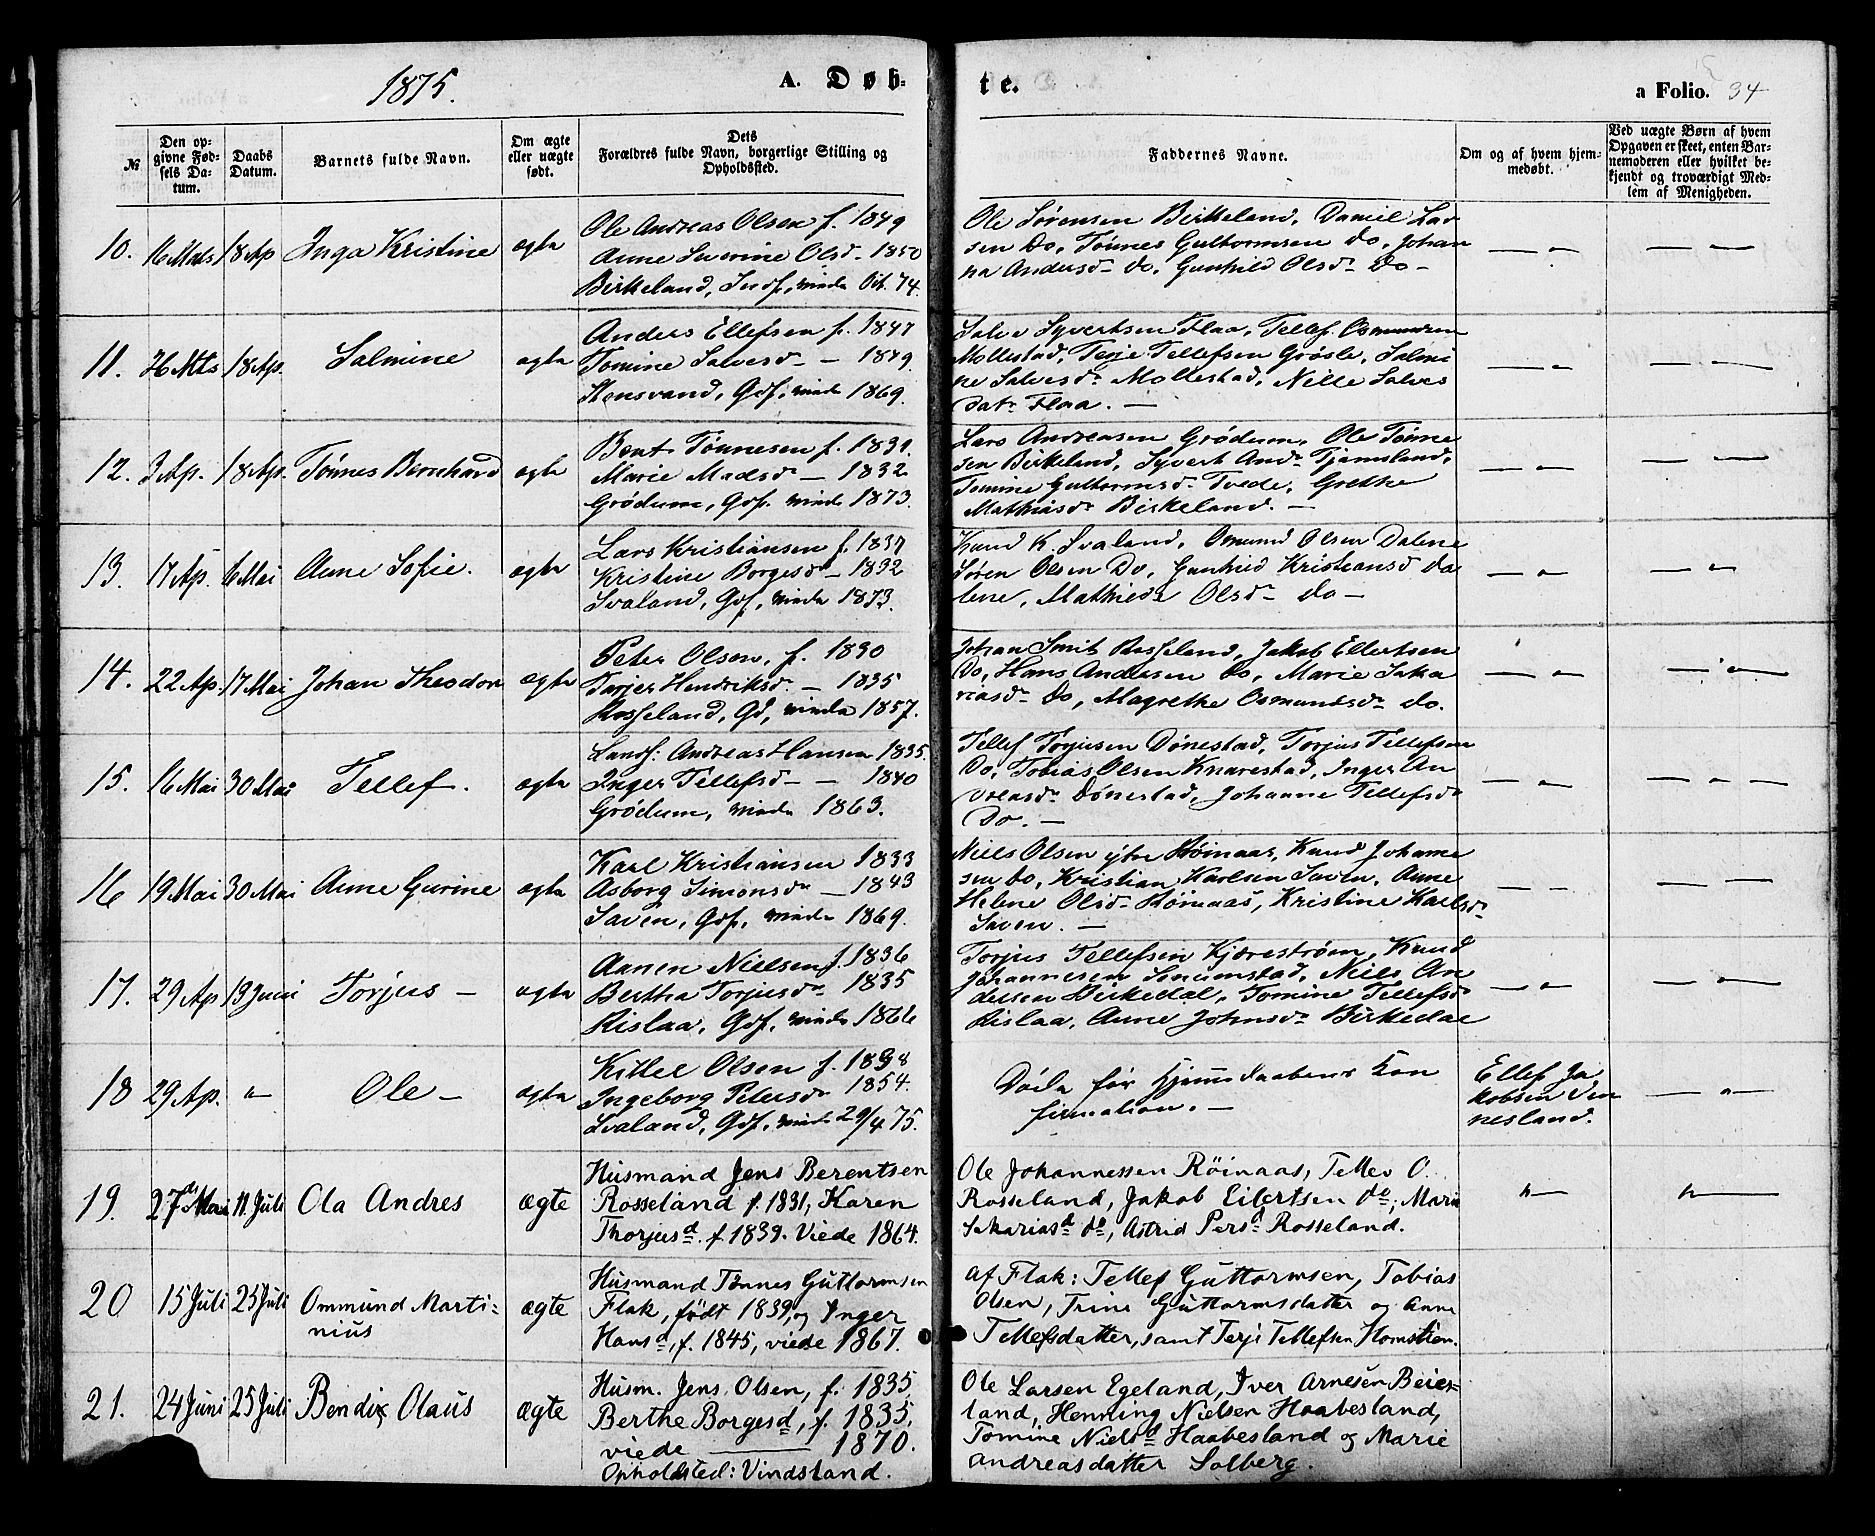 1875.
A. Døb-
te.
a Folio. 34
№
Den op-
givne Fød-
sels Da-
tum.
Daabs
Datum.
Barnets fulde Navn.
Om ægte
eller uægte
født.
Dets
Forældres fulde Navn, borgerlige Stilling og
Opholdssted.
Faddernes Navne.
Om og af hvem hjem-
medøbt.
Ved uægte Børn af hvem
Opgaven er skeet, enten Bar-
nemoderen eller hvilket be-
kjendt og troværdigt Med-
lem af Menigheden.
10. 16 Mts 18 Ap Inga Kristine ægte
Ole Andreas Olsen f. 1849
Anne Severine Olsd - 1850
Birkeland, Inds, viede Okt. 74.
Ole Sørensen Birkeland, Daniel Lar
sen Do, Tønnes Guttormsen do, Johan
na Andersd do, Gunhild Olsd Do -
11. 26 Mts 18 Ap. Salmine ægte
Anders Ellefsen f. 1847
Tomine Salvesd - 1849
Stensvand, Gdf, viede 1869.
Salve Syvertsen Flaa, Tellef Osmundsen
Mollestad, Terje Tellefsen Grøsle, Salmi
ne Salvesd Mollestad, Nille Salves
datr Flaa. -
12. 3 Ap. 18 Ap. Tønnes Bernhard ægte
Bent Tønnesen f. 1831.
Marie Madsd - 1832
Grødum, Gdf. viede 1873.
Lars Andreasen Grødum, Ole Tønne
sen Birkeland, Syvert And Tjomsland,
Tomine Guttormsd Tvede, Grethe
Mathiasd Birkeland. -
13. 17 Ap. 6 Mai Anne Sofie. ægte
Lars Kristiansen f. 1837
Kristine Borgesd - 1832
Svaland, Gdf, viede 1873.
Knud K. Svaland, Osmund Olsen Dalene
Søren Olsen Do, Gunhild Kristiansd Da
lene, Mathilde Olsd do -
14. 22 Ap. 17 Mai Johan Theodor ægte
Peter Olsen, f. 1830
Tarjer Hendriksd. - 1835
Rosseland, Gd, viede 1857.
Johan Smit Rosseland, Jakob Ellertsen
Do, Hans Andersen do, Marie Saka
riasd do, Magrethe Osmundsd do.
15. 16 Mai 30 Mai Tellef. ægte
Landh: Andreas Hansen 1835.
Inger Tellefsd - - 1840
Grødum, viede 1863.
Tellef Torjusen Dønestad, Torjus Tellefsen
Do, Tobias Olsen Knarestad, Inger An
dreasd Dønestad, Johanne Tellefsd
Do. -
16 19 Mai 30 Mai Anne Gurine ægte
Karl Kristiansen 1833
Asborg Simonsd - 1843
Saven, Gdf, viede 1869.
Niels Olsen ytre Røinaas, Knud Johanne
sen do, Kristian Karlsen Saven, Anne
Helene Olsd Røinaas, Kristine Karlsd
Saven. -
17. 29 Ap 13 Juni Torjus - ægte
Aanen Nielsen f. 1836
Bertha Torjusd 1835
Rislaa, Gdf, viede 1866
Torjus Tellefsen Kjærestrøm, Knud
Johannesen Senumstad, Niels An
dersen Birkedal, Tomine Tellefsd
Rislaa, Anne Johnsd Birkedal
18 29 Ap. " Ole - ægte
Kittel Olsen f. 1838
Ingeborg Petersd 1854.
Svaland, Gdf, viede 29/4 75.
Døde før Hjemmedaabens Kon
firmation. -
Ellef Ja
kobsen Ven
nesland.
19. 27de Mai 11. Juli Ola Andres ægte
Husmand Jens Berentsen
Rosseland f. 1831, Karen
Thorjusd. f 1839. Viede 1864.
Ole Johannessen Röinaas, Tellev O.
Rosseland, Jakob Eilertsen do, Marie
Sakariasd do, Astrid Persd Rosseland.
20 15 Juli 25 Juli Ommund Marti=
nius ægte
Husmand Tønnes Guttormsen
Flak, født 1839, og Inger
Hansd, f. 1845, viede 1867.
Af Flak: Tellef Guttormsen, Tobias
Olsen, Trine Guttormsdatter og Anne
Tellefsdatter, samt Terje Tellefsen Homstien.
21. 24 Juni 25 Juli Bendix Olaus ægte
Husm. Jens Olsen, f. 1835,
Berthe Borgesd, f. 1835,
viede 1870.
Opholdsted: Vindsland.
Ole Larsen Egeland, Iver Arnesen Beier=
land, Henning Nielsen Haabesland,
Tomine Nielsd Haabesland og Marie
Andreasdatter Solberg.